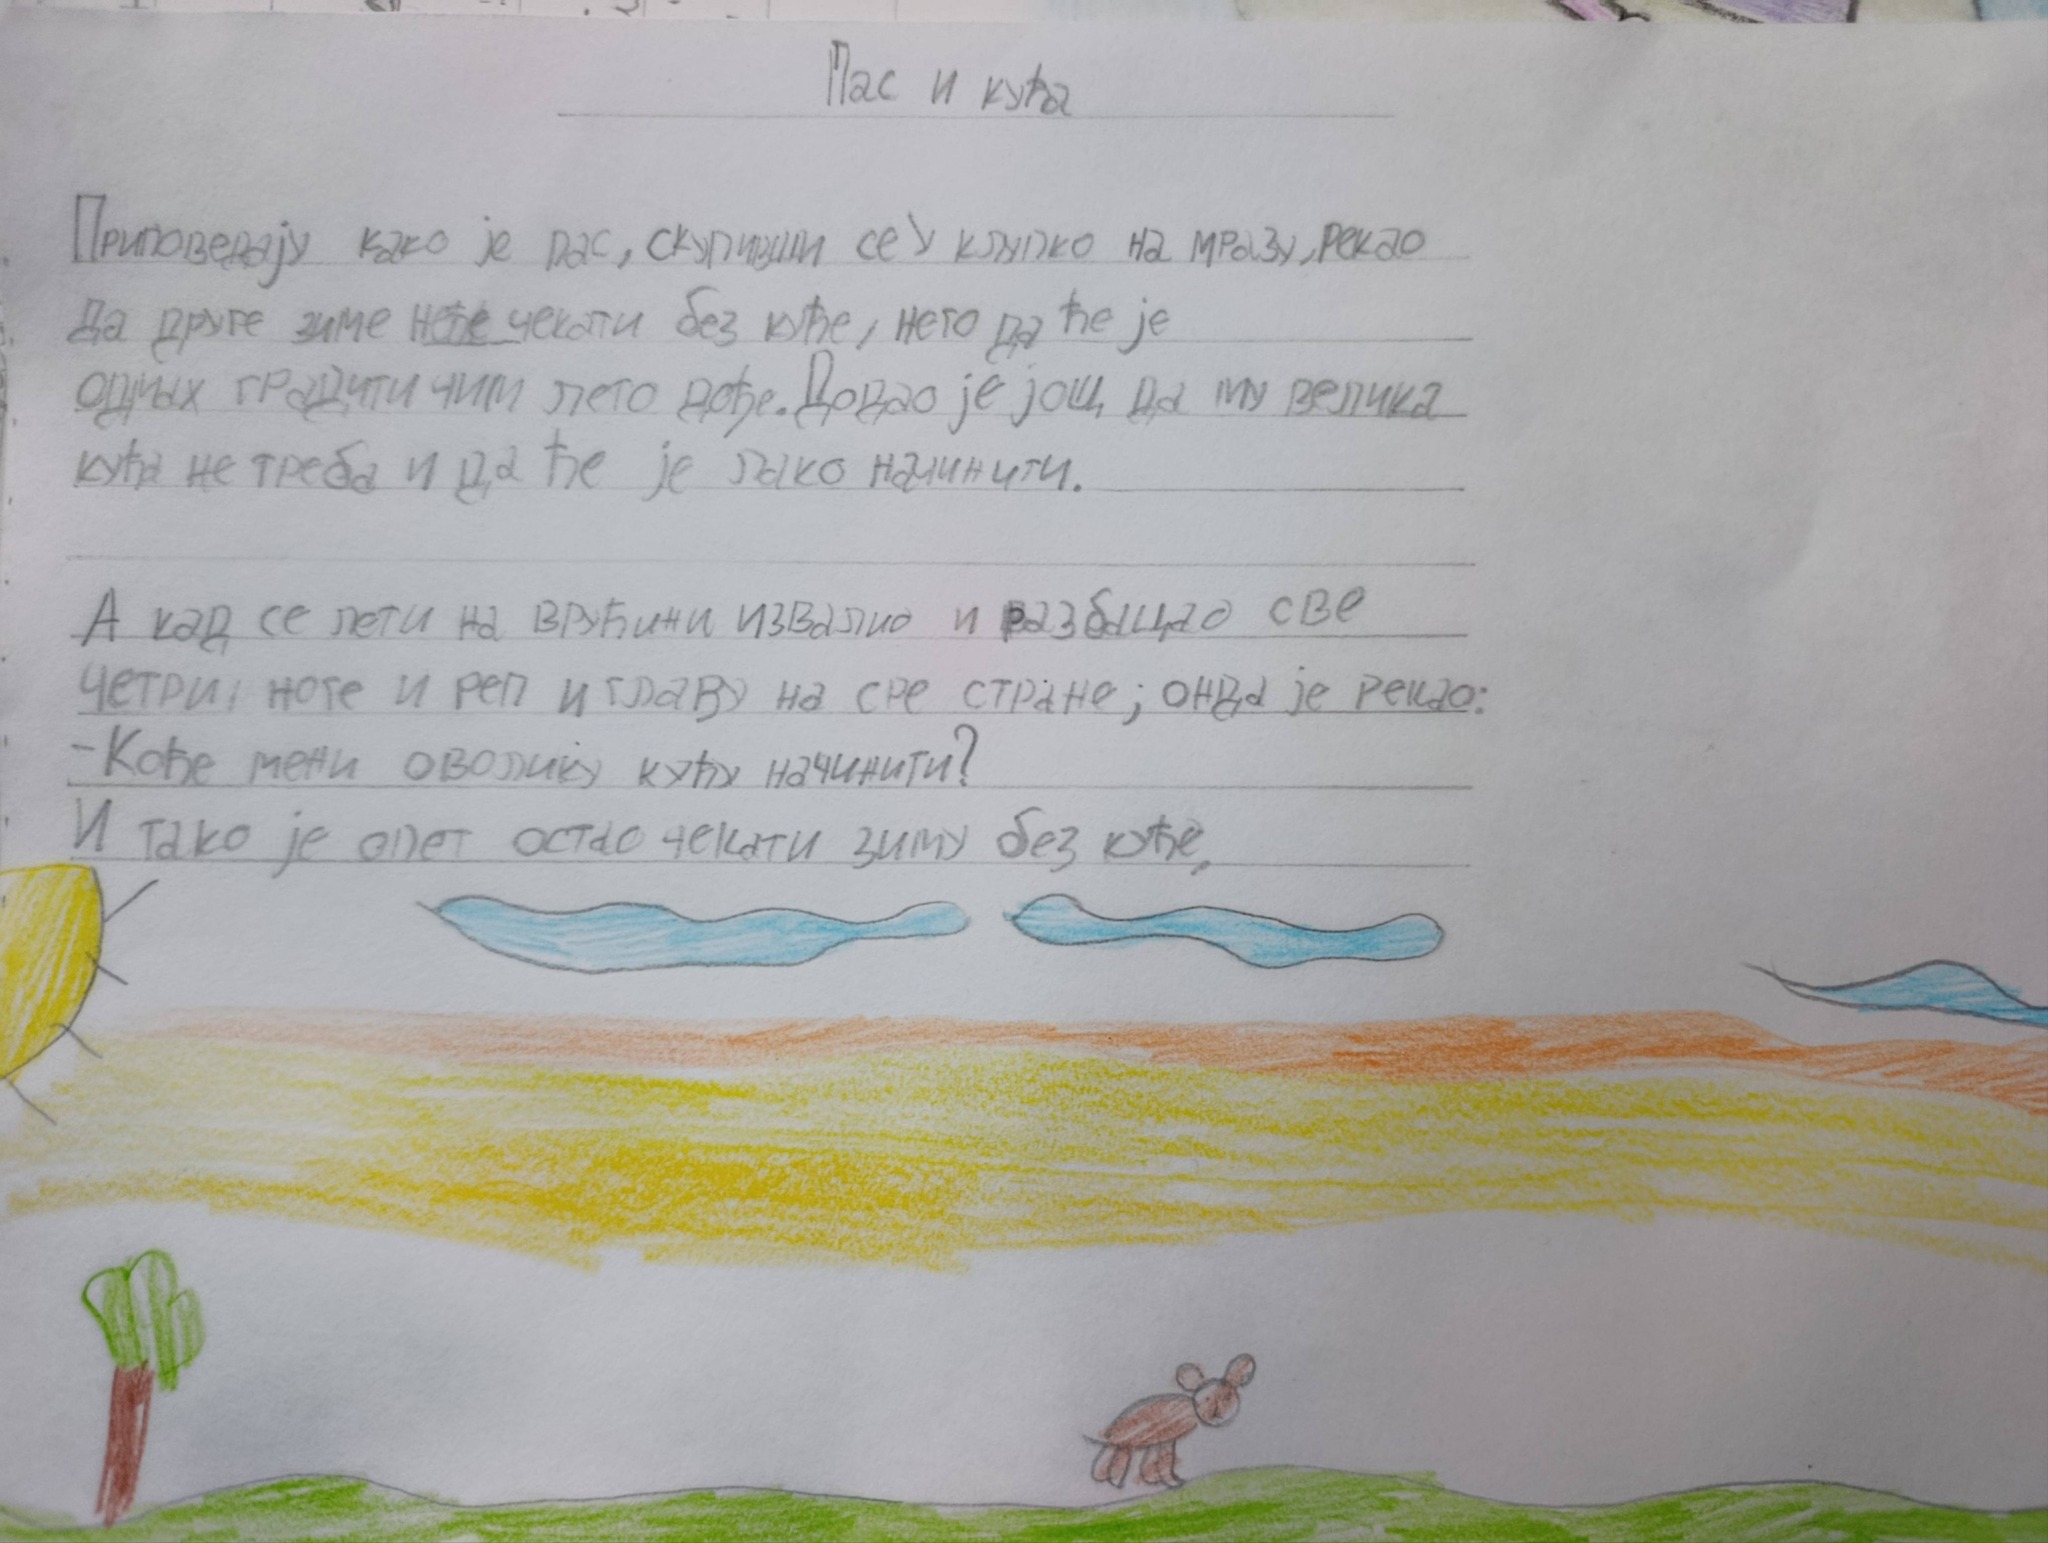 Пас и кућа
Приповедају како је пас, скупивши се у клупко на мразу, рекао
да друге зиме неће чекати без куће, него да ће је
одмах градити чим лето дође. Додао је још да му велика
кућа не треба и да ће је лако начинити.
А кад се лети на врућини извалио и разбацао све
четри, ноге и реп и главу на све стране; онда је рекао:
-Коће мени оволику кућу начинити?
И тако је опет остао чекати зиму без куће.